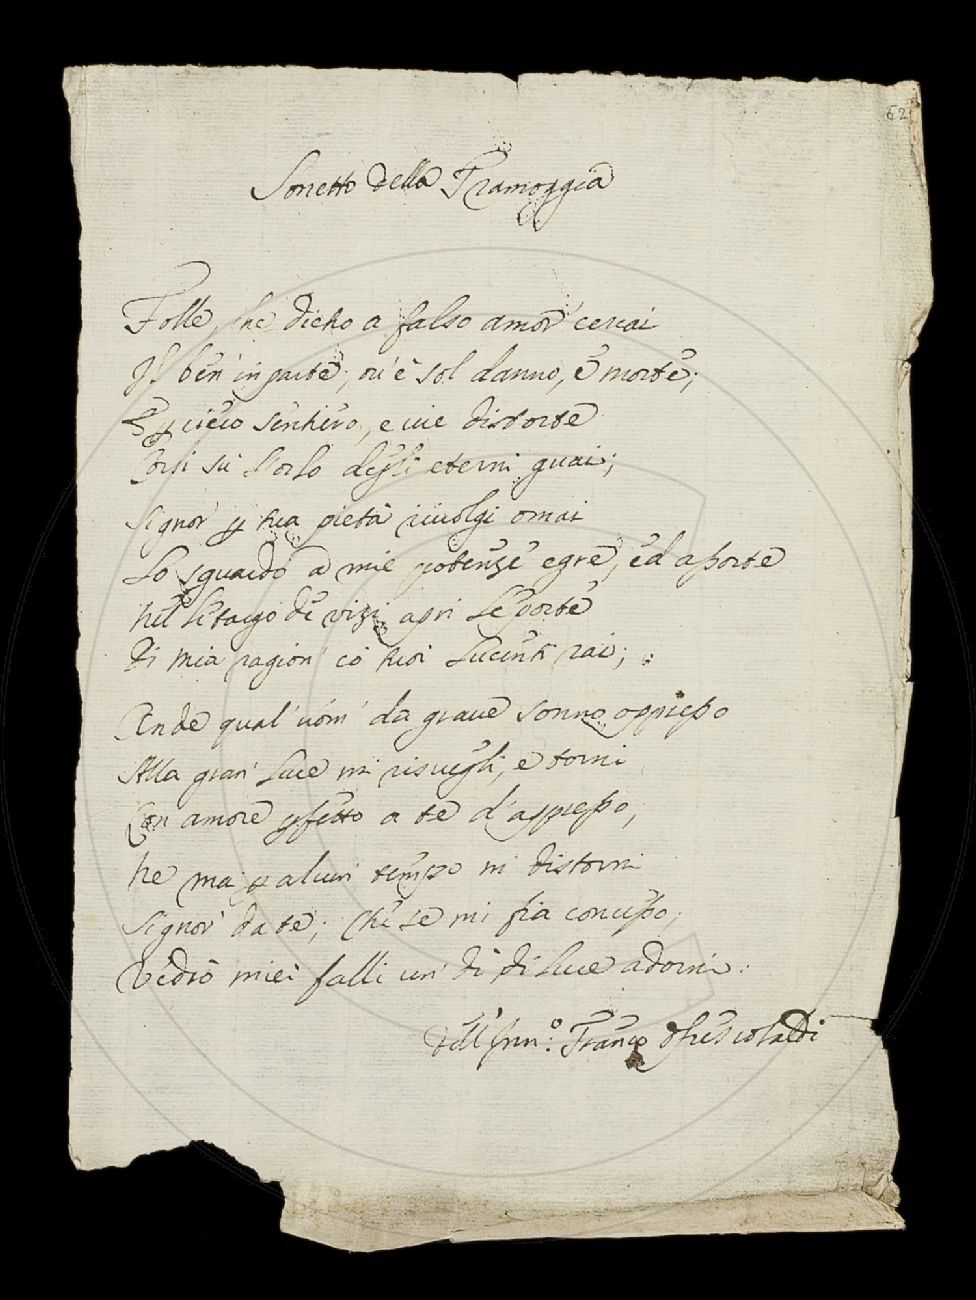 62
Sonetto della Tramoggia
Folle, che dicho a falso amor' cercai
Il ben' in parte, ou' è sol danno, è morte;
E p cieco sentiero, e uie distorte
Corsi sù l'orlo degli eterni guai;
Signor' p tua pietà riuolgi omai
Lo sguardo a mie potenze egre, ed assorte
Nel letargo de vizi apri le porte
Di mia ragion' cò tuoi lucenti rai;
Onde qual' uom' da graue sonno oppresso
Alla gran' luce mi risuegli, e torni
Con amore pfetto a te d'appresso,
Ne mai p alcun tempo mi distorni
Signor' da te; che se mi fia concesso,
Vedrò miei falli un' dì di luce adorni.
Dell' Franco Frescobaldi